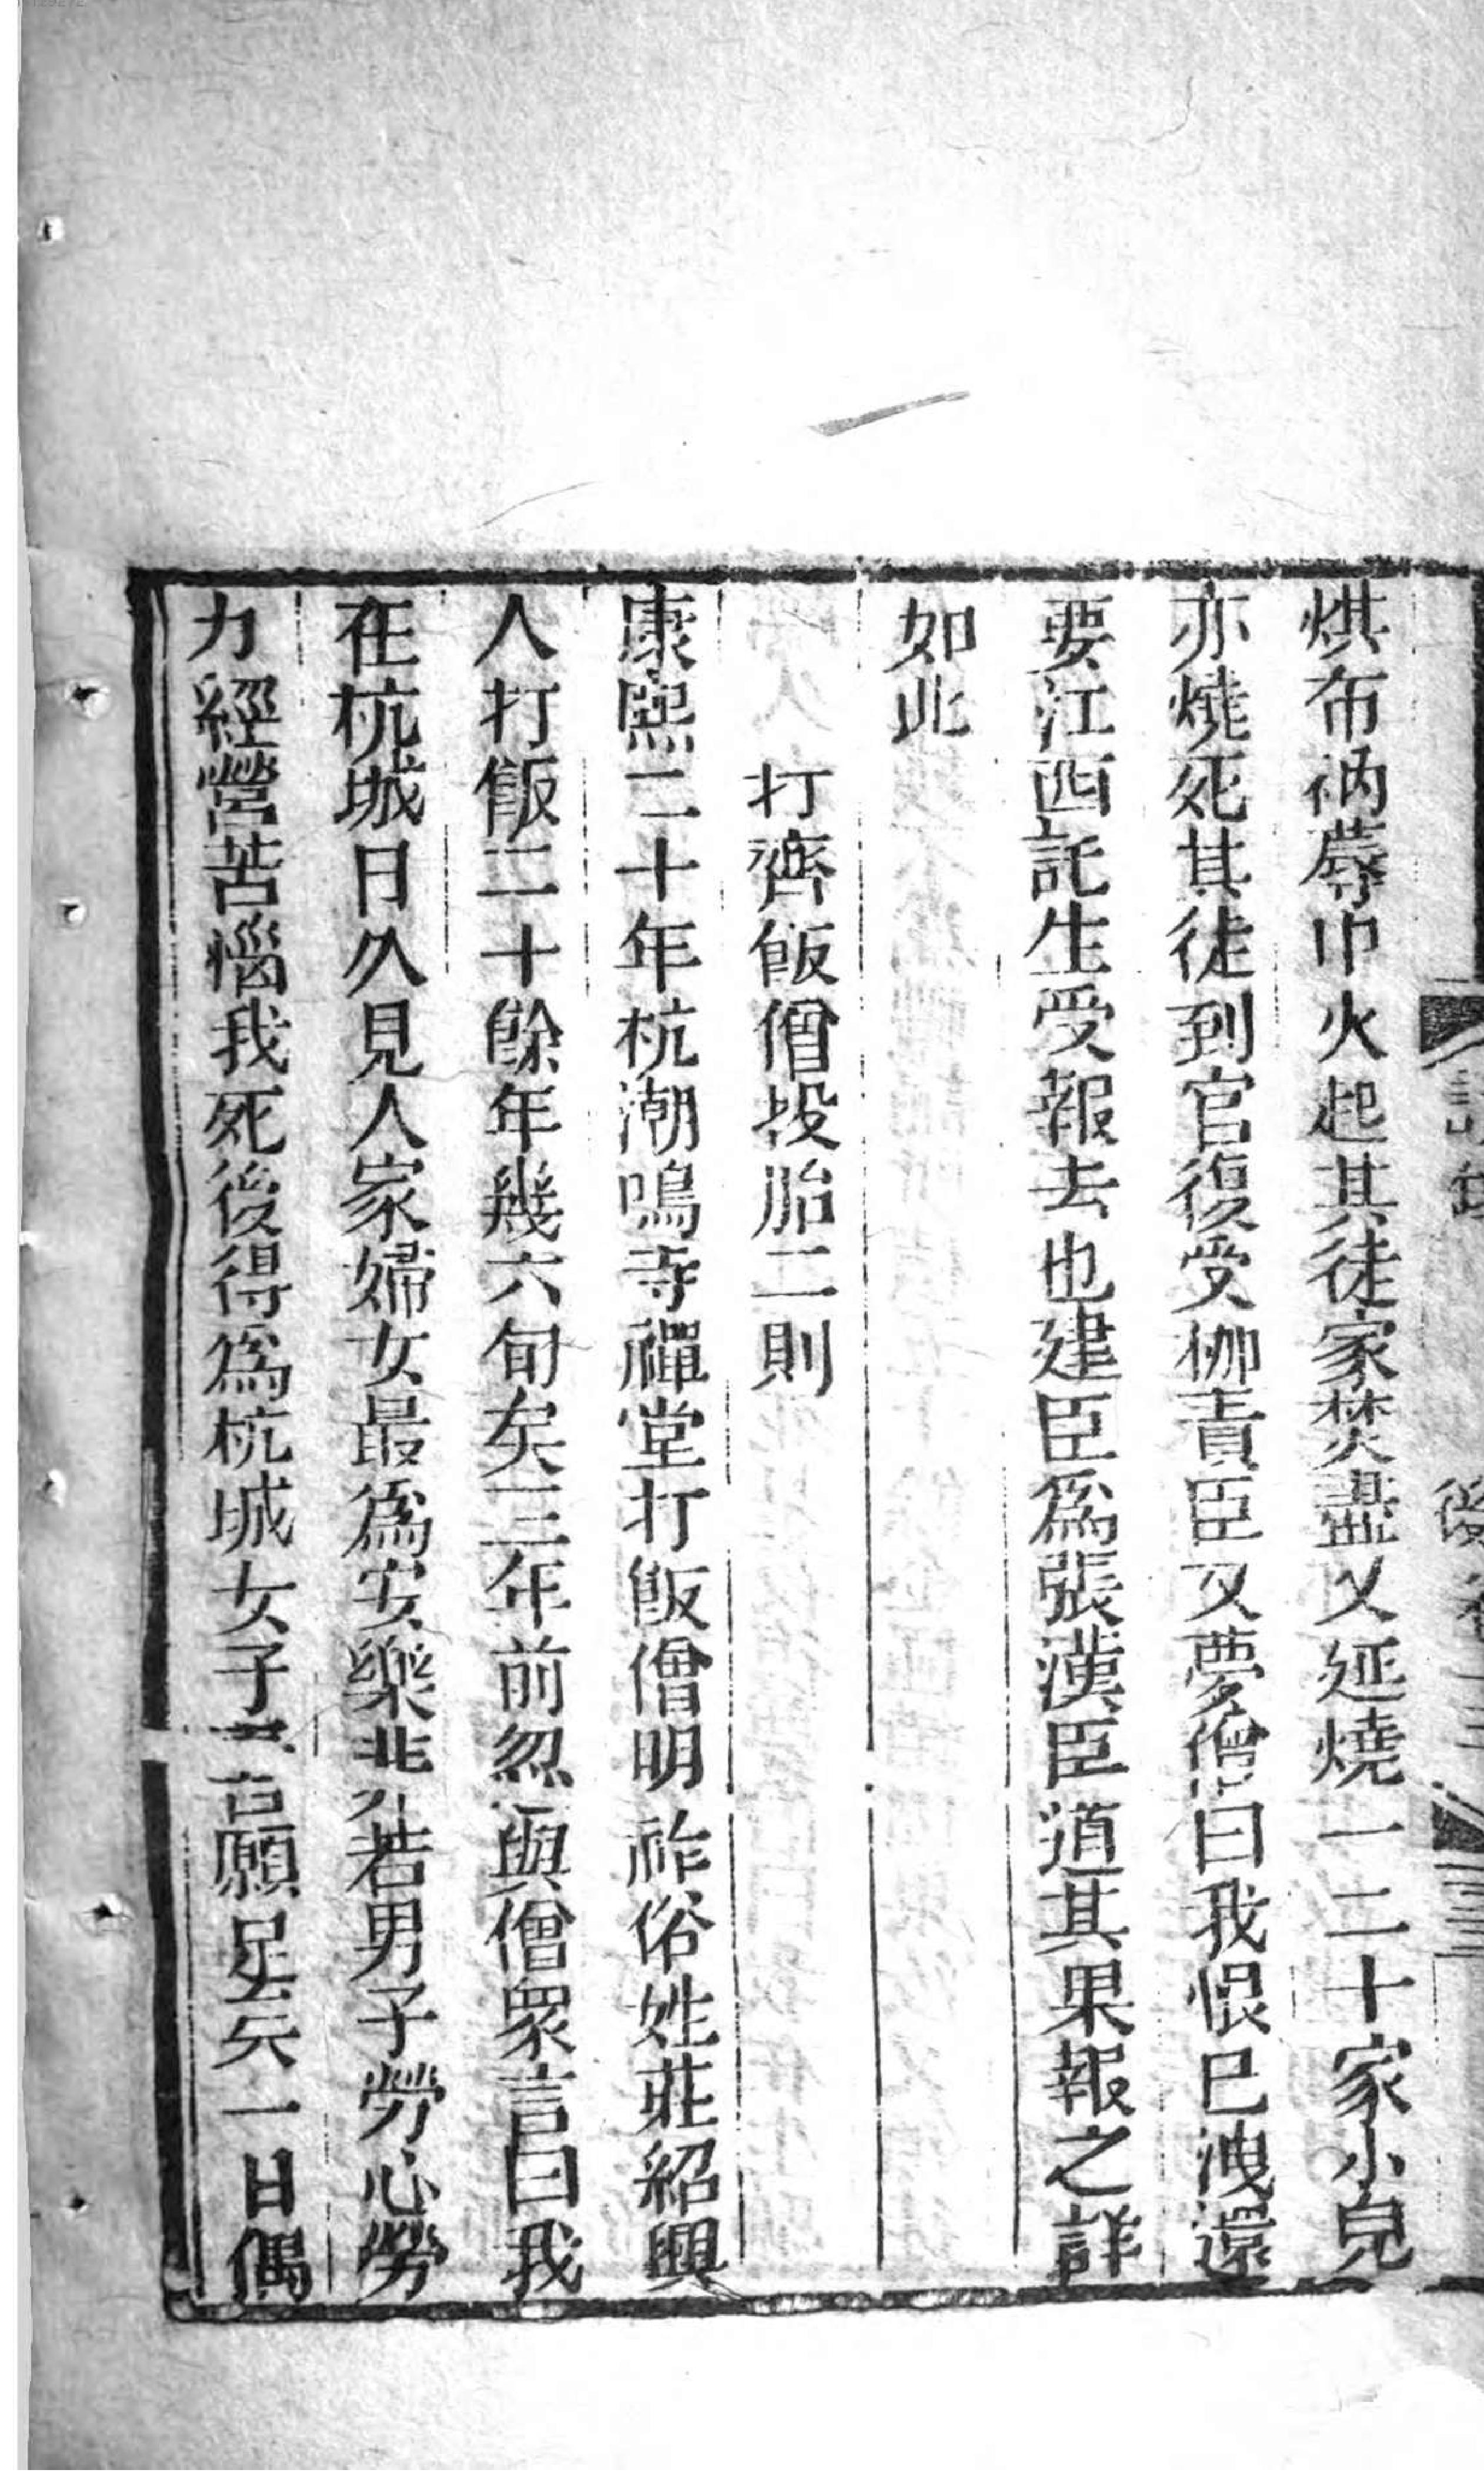 烘布衲蓐巾火起其徒家焚盡又延燒一二十家小兒
亦燒死其徒到官復受枷責臣又夢僧曰我恨已洩還
要江西託生受報去也建臣為張漢臣道其果報之詳
如此
打齋飯僧投胎二則
康熙二十年杭潮鳴寺禪堂打飯僧明祚俗姓莊紹興
人打飯二十餘年幾六旬矣三年前忽與僧眾言曰我
在杭城日久見人家婦女最為安樂非若男子勞心勞
力經營苦惱我死後得為杭城女子吾願足矣一日偶
後卷三